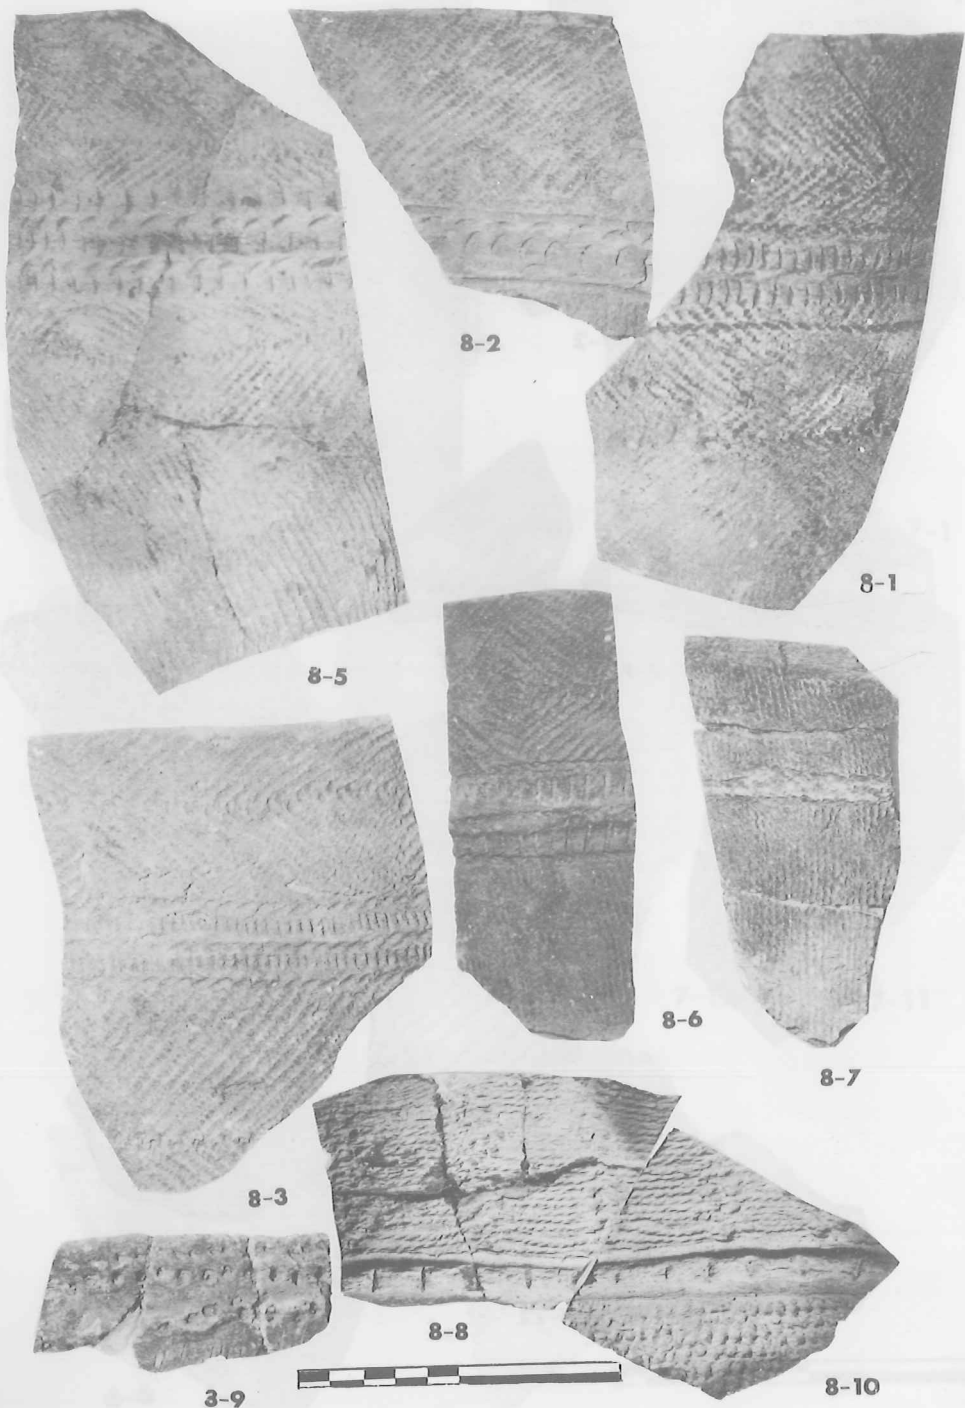 8-2
8-1
8-5
8-6
8-7
8-3
8-8
3-9
8-10